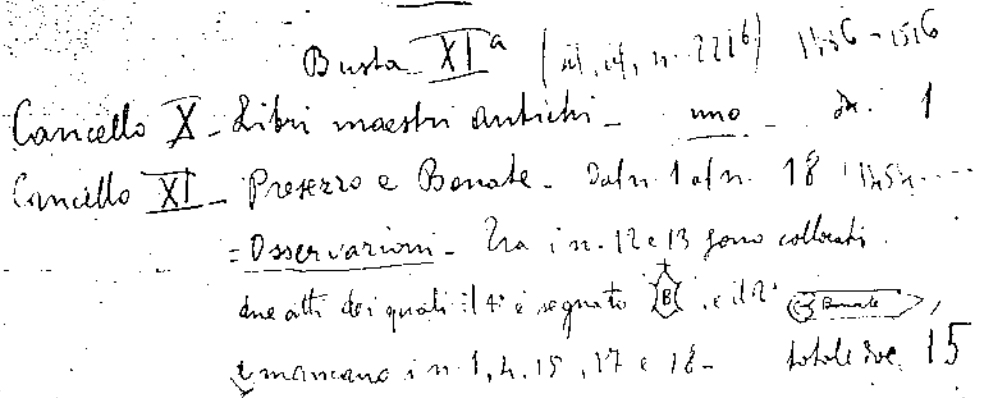 Busta XIª (id, id, n. 2216) 1456-1516
Cancello X - Libri maestri antichi - uno - 1
Cancello XI - Presezzo e Bonate - Dal n. 1 al n. 18
= Osservazioni - Tra i n. 12 e 13 sono collocati
due atti dei quali il 1° è segnato B, e il 2° Bonate,
e mancano i n. 1, 4, 15, 17 e 18 - totale 15